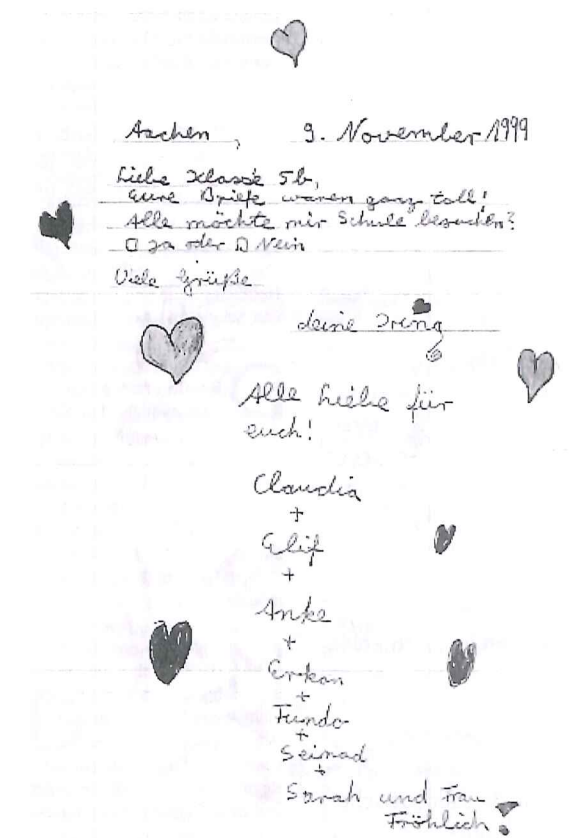 Aachen, 9. November 1999
Liebe Klasse 5b,
Eure Briefe waren ganz toll!
Alle möchte mir Schule besuchen?
□ Ja oder □ Nein
Viele Grüße
deine Irena
Alle Liebe für
euch!
Claudia
+
Elif
+
Anke
+
Erkan
+
Funda
+
Seinad
+
Sarah und Frau
Fröhlich!